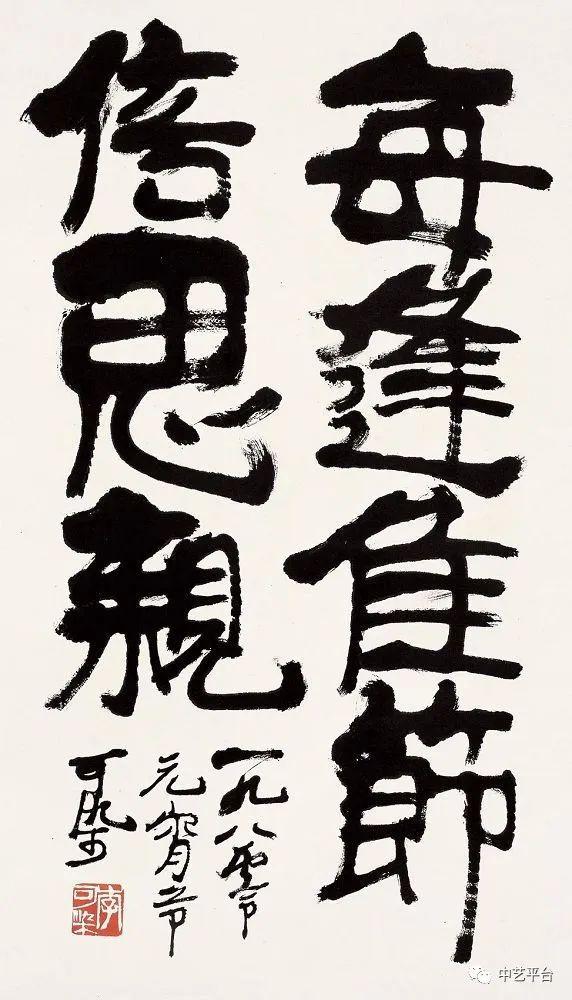 每逢佳節
倍思親
一九八零
元宵节
可染
李可染
中艺平台